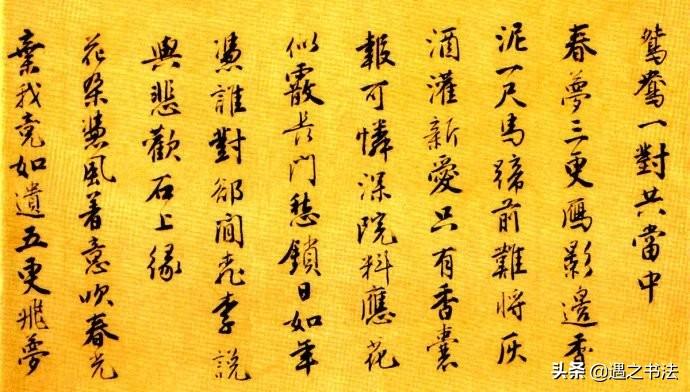 鴛鴦一對共當中
春夢三更雁影邊香
泥一尺馬蹄前難將灰
酒灌新愛只有香囊
報可憐深院料應花
似霰長門愁鎖日如年
憑誰對卻閒桃李說
與悲歡石上緣
花朵憑風著意吹春光
棄我竟如遺五更飛夢
头条 @遇之书法